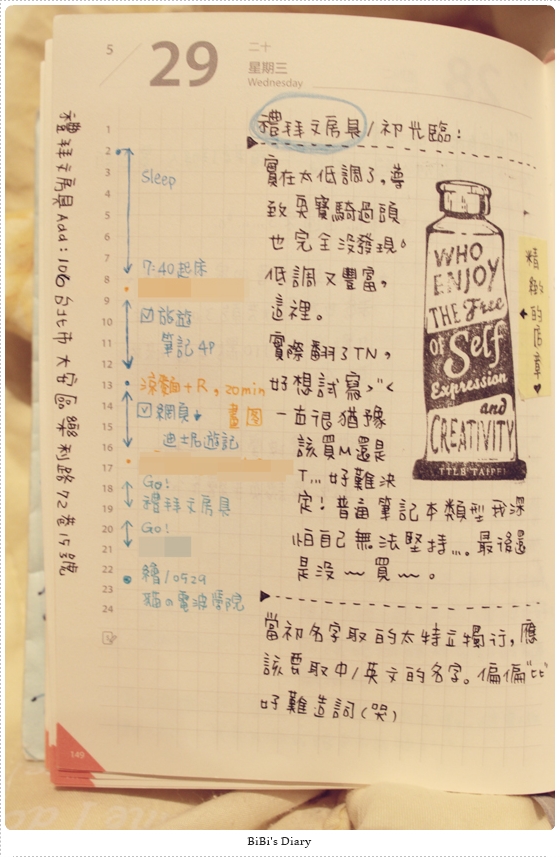 5
29
二十
星期三
Wednesday
禮拜文房具Add:106台北市大安區樂利路72巷15號
1
2
3
4
5
6
7
8
9
10
11
12
13
14
15
16
17
18
19
20
21
22
23
24
Sleep
7:40起床
旅遊
筆記4P
涼麵+R, 20min
網頁
畫圖
迪士尼遊記
Go!
禮拜文房具
Go!
繪/0529
貓の電波學院
禮拜文房具/初光臨:
實在太低調了,導
致 騎過頭
也完全沒發現。
低調又豐富,
這裡。
實際翻了TN,
好想試寫
一直很猶豫
該買M還是
T...好難決
定!普通筆記本類型我深
怕自己無法堅持... 最後還
是沒~買~。
WHO
ENJOY
THE Free
OF Self
Expression
and
CREATIVITY
TTLB TAIPEI
精緻的店章
當初名字取的太特立獨行,應
該要取中/英文的名字。偏偏"比"
好難造詞(哭)
149
BiBi's Diary